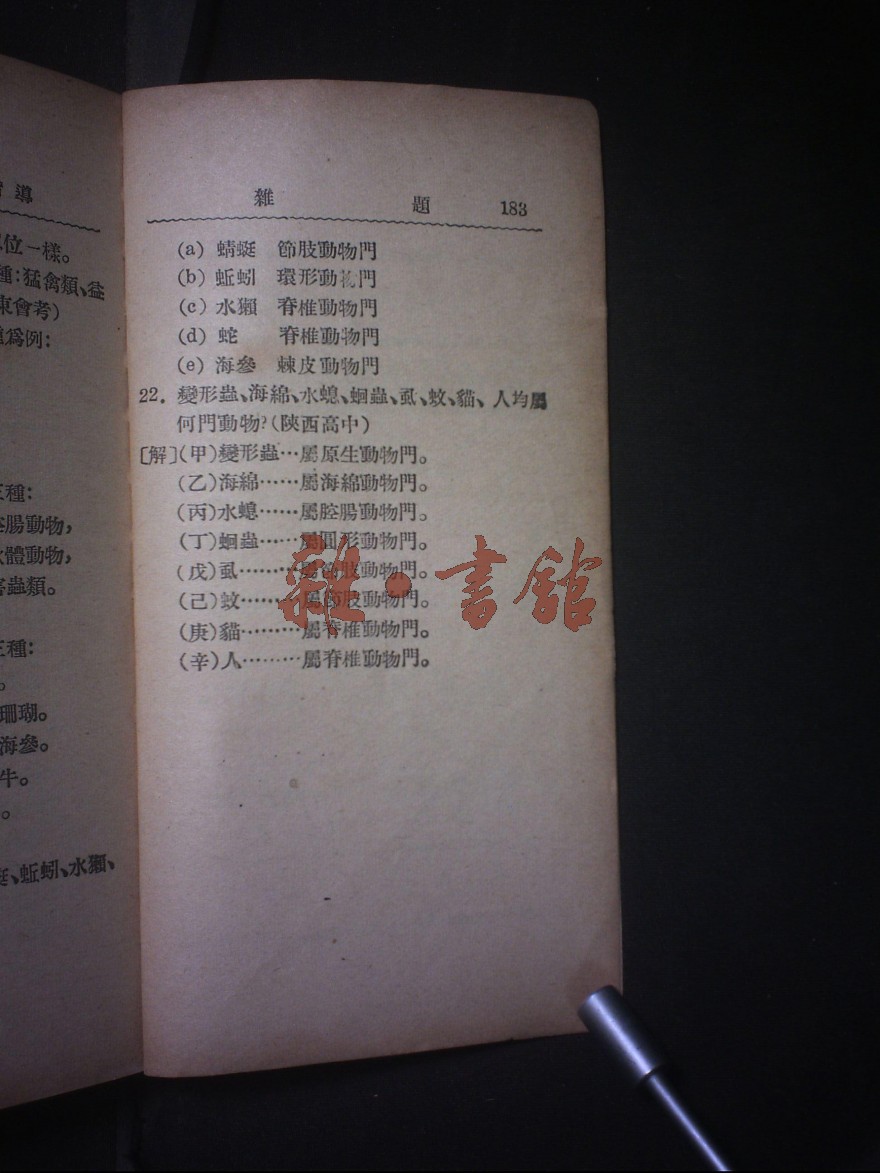 導
位一樣。
種:猛禽類、益
東會考)
爲例:
三種:
腸動物,
體動物,
害蟲類。
三種:
。
珊瑚。
海參。
牛。
。
、蚯蚓、水獺、
雜 題 183
(a) 蜻蜓 節肢動物門
(b) 蚯蚓 環形動物門
(c) 水獺 脊椎動物門
(d) 蛇 脊椎動物門
(e) 海參 棘皮動物門
22. 變形蟲、海綿、水螅、蛔蟲、虱、蚊、貓、人均屬
何門動物?(陝西高中)
[解](甲)變形蟲…屬原生動物門。
(乙)海綿……屬海綿動物門。
(丙)水螅……屬腔腸動物門。
(丁)蛔蟲……屬圓形動物門。
(戊)虱………屬節肢動物門。
(己)蚊………屬節肢動物門。
(庚)貓………屬脊椎動物門。
(辛)人………屬脊椎動物門。
雜·書館